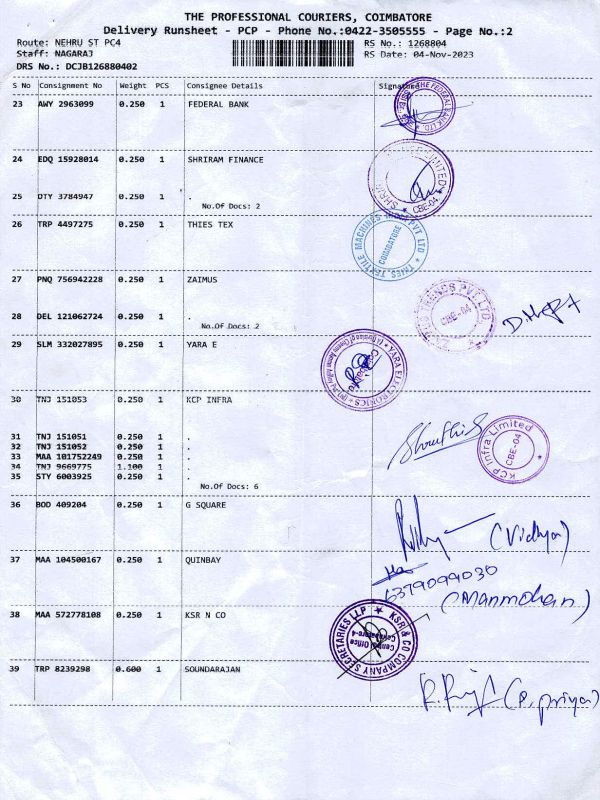 THE PROFESSIONAL COURIERS, COIMBATORE
Delivery Runsheet - PCP - Phone No.:0422-3505555 - Page No.:2
Route: NEHRU ST PC4 RS No.: 1268804
Staff: NAGARAJ RS Date: 04-Nov-2023
DRS No.: DCJB126880402
S No Consignment No Weight PCS Consignee Details Signature
23 AWY 2963099 0.250 1 FEDERAL BANK
THE FEDERAL BANK LTD.
24 EDQ 15928014 0.250 1 SHRIRAM FINANCE
LIMITED
CBE-04
25 DTY 3784947 0.250 1 .
No.Of Docs: 2
26 TRP 4497275 0.250 1 THIES TEX
THIES TEXTILE MACHINES INDIA PVT LTD
COIMBATORE
27 PNQ 756942228 0.250 1 ZAIMUS
PVT LTD
CBE-04
28 DEL 121062724 0.250 1 .
No.Of Docs: 2
29 SLM 332027895 0.250 1 YARA E
YARA ELECTRONICS
30 TNJ 151053 0.250 1 KCP INFRA
KCP Infra Limited
CBE-04
31 TNJ 151051 0.250 1 .
32 TNJ 151052 0.250 1 .
33 MAA 101752249 0.250 1 .
34 TNJ 9669775 1.100 1 .
35 STY 6003925 0.250 1 .
No.Of Docs: 6
36 BOD 409204 0.250 1 G SQUARE
(Vidhya)
37 MAA 104500167 0.250 1 QUINBAY
6379099030
(Manmohan)
38 MAA 572778108 0.250 1 KSR N CO
KSR & CO COMPANY SECRETARIES LLP
Central Office
Coimbatore-4
39 TRP 8239298 0.600 1 SOUNDARAJAN
(P. priya)